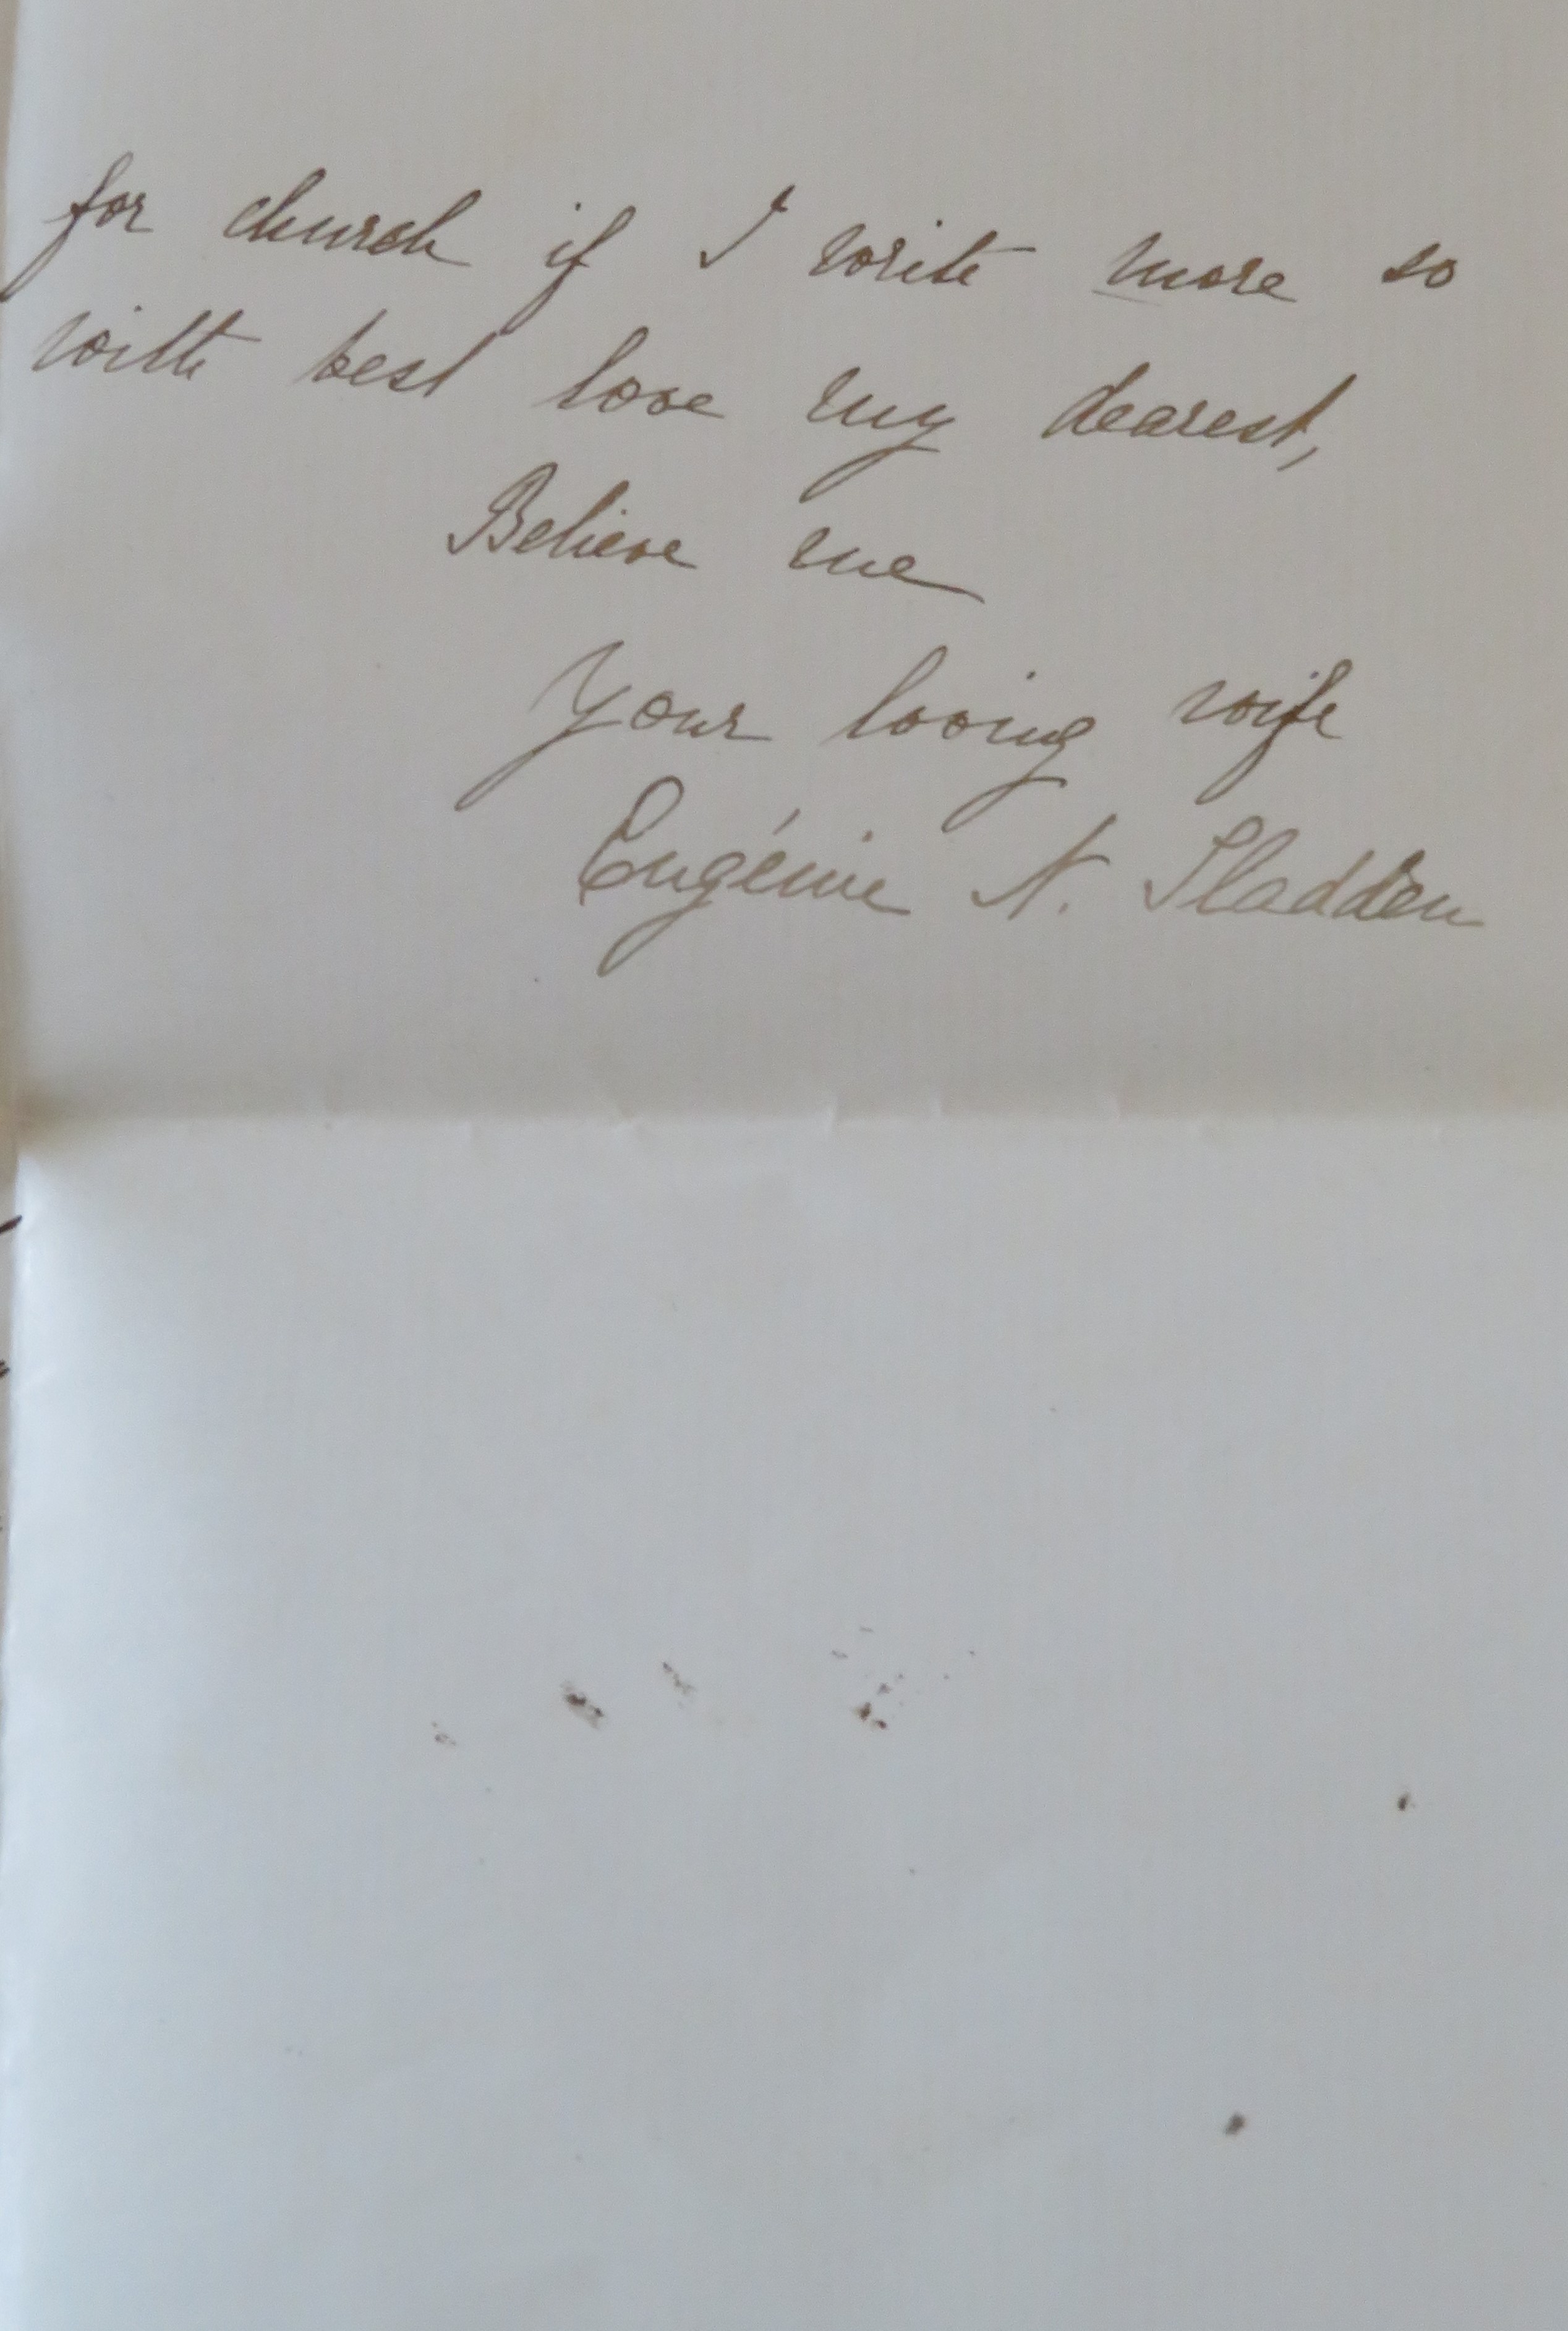 for church if I write more so
with best love my dearest,
Believe me
Your loving wife
Eugénie N. Sladden